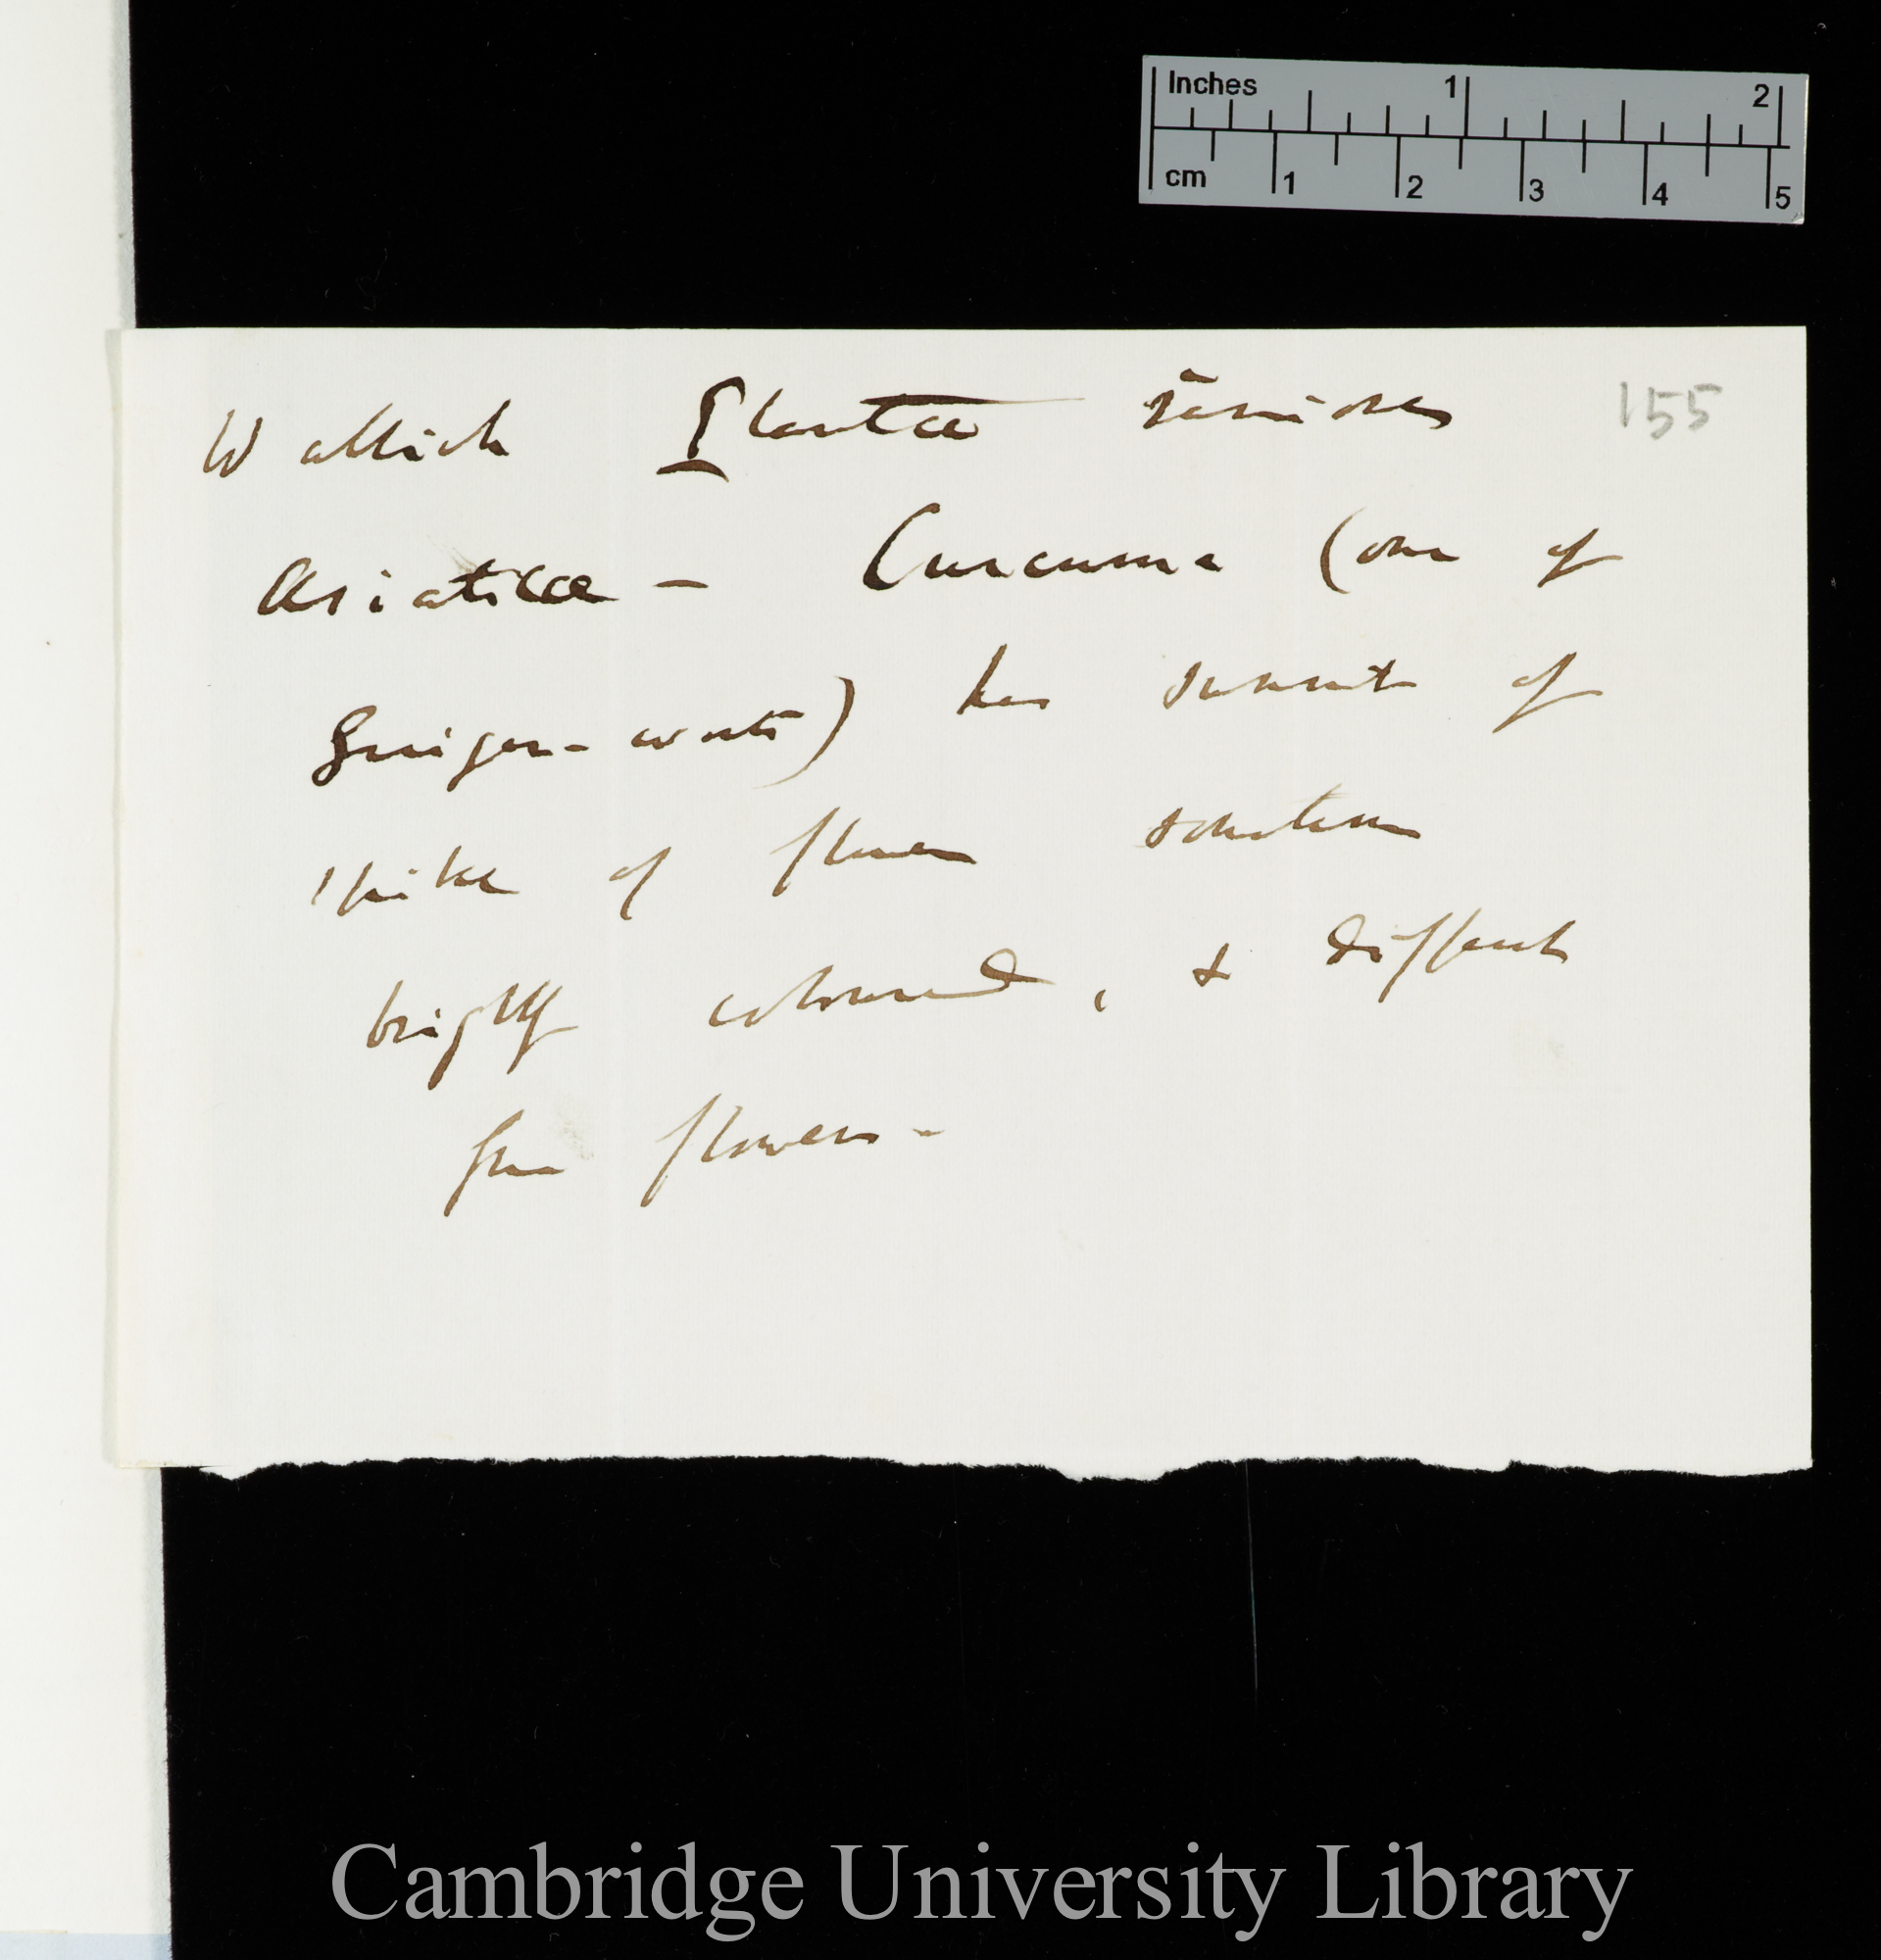 Inches 1 2
cm 1 2 3 4 5
155
Wallich Plantæ rariores
Asiaticæ – Curcuma (one of
Ginger-worts) has summit of
spike of flower sometimes
brightly coloured, & different
from flowers –
Cambridge University Library